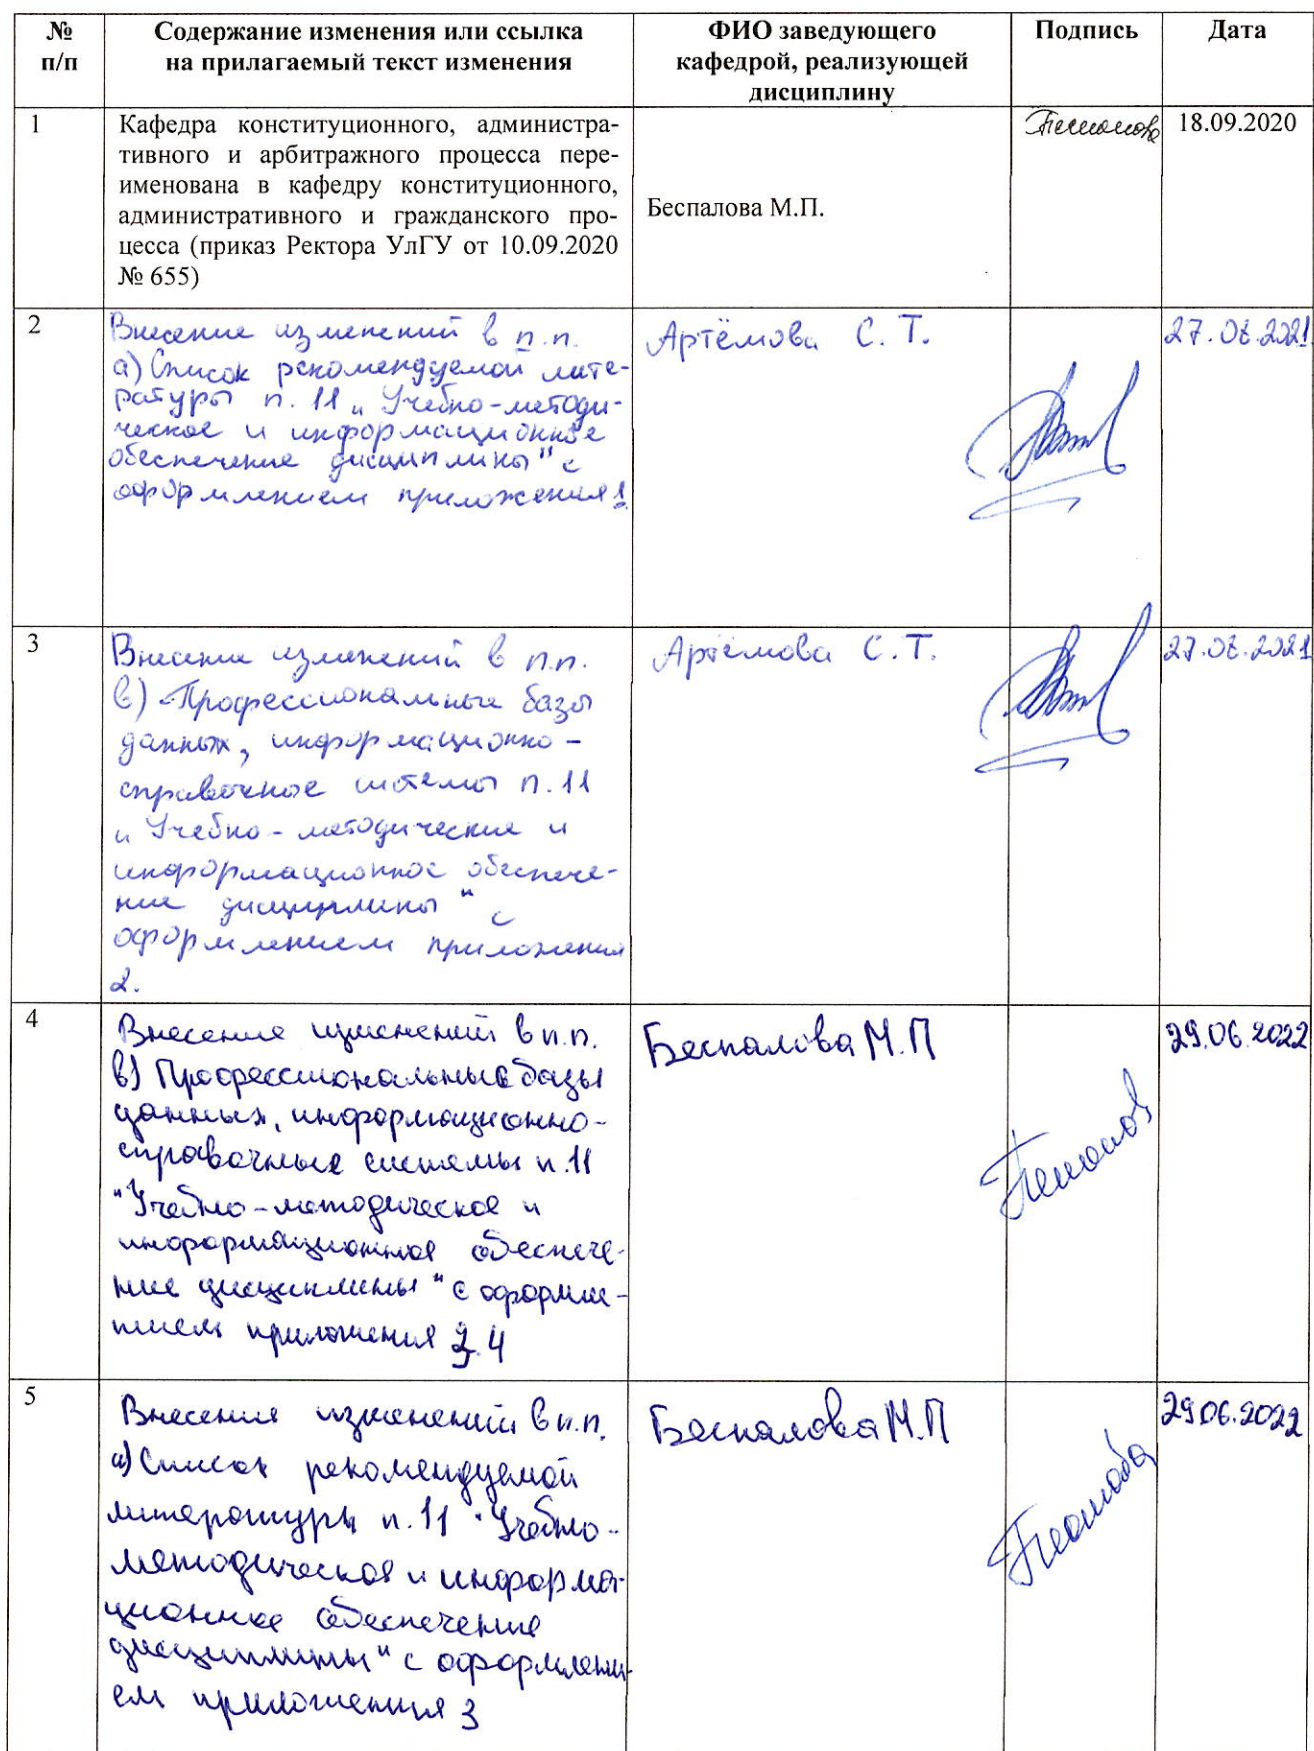 № п/п
Содержание изменения или ссылка
на прилагаемый текст изменения
ФИО заведующего
кафедрой, реализующей
дисциплину
Подпись
Дата
1
Кафедра конституционного, администра-
тивного и арбитражного процесса пере-
именована в кафедру конституционного,
административного и гражданского про-
цесса (приказ Ректора УлГУ от 10.09.2020
№ 655)
Беспалова М.П.
18.09.2020
2
Внесение изменений в п.п.
а) Список рекомендуемой лите-
ратуры п. 11 „Учебно-методи-
ческое и информационное
обеспечение дисциплины" с
оформлением приложения 1
Артёмова С. Т.
27.08.2021
3
Внесение изменений в п.п.
в) Профессиональные базы
данных, информационно-
справочные системы п. 11
„Учебно-методическое и
информационное обеспече-
ние дисциплины" с
оформлением приложения
2.
Артёмова С. Т.
27.08.2021
4
Внесение изменений в п.п.
в) Профессиональные базы
данных, информационно-
справочные системы п. 11
"Учебно-методическое и
информационное обеспече-
ние дисциплины" с оформле-
нием приложения 4
Беспалова М.П
29.06.2022
5
Внесение изменений в п.п.
а) Список рекомендуемой
литературы п. 11 "Учебно-
методическое и информа-
ционное обеспечение
дисциплины" с оформлени-
ем приложения 3
Беспалова М.П
29.06.2022